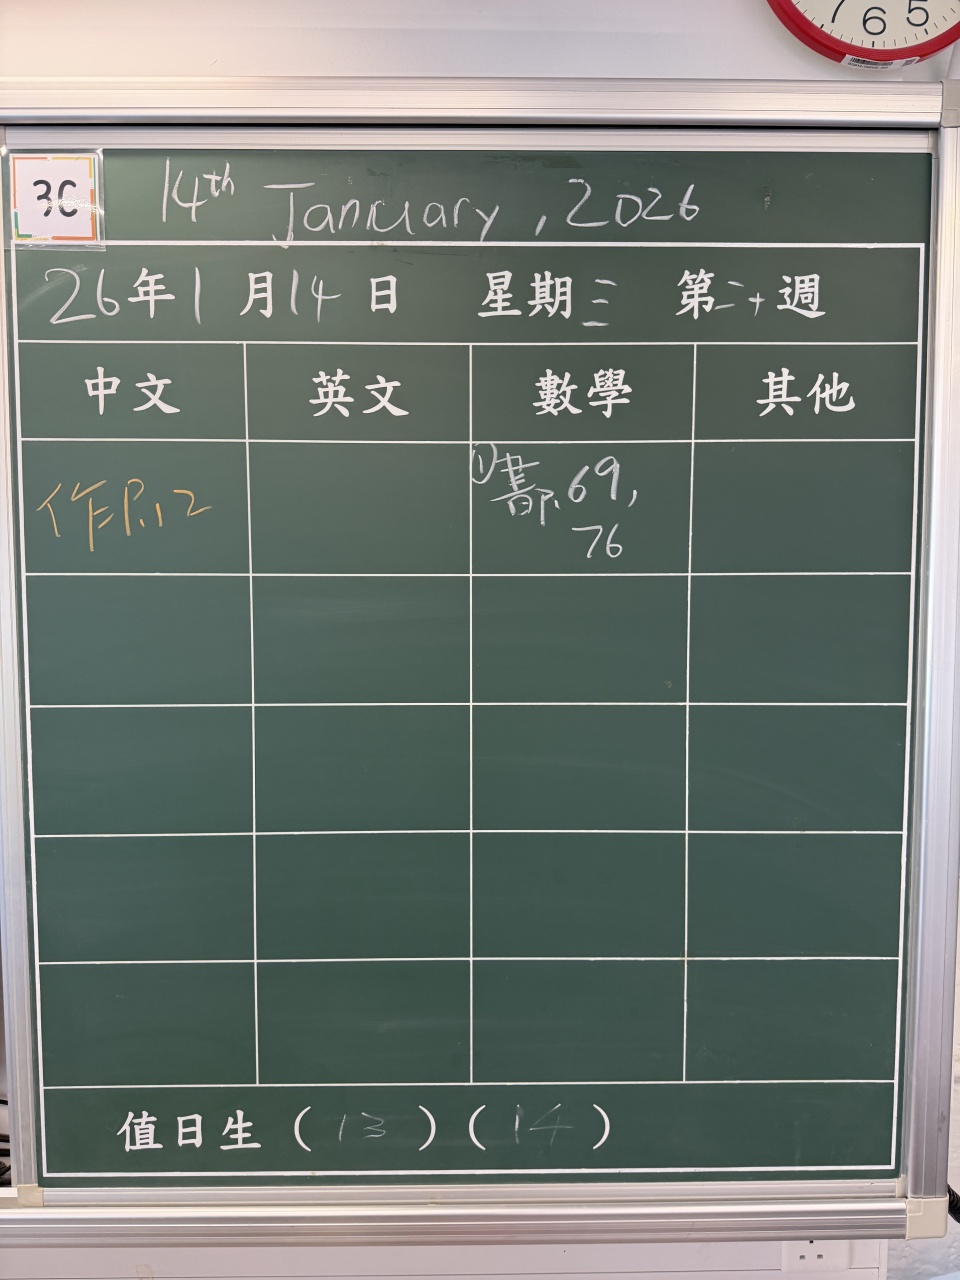 7 6 5
3C
14th January, 2026
26年1月14日 星期三 第二十週
中文 英文 數學 其他
作P.12
①書P.69,
76
值日生(13)(14)